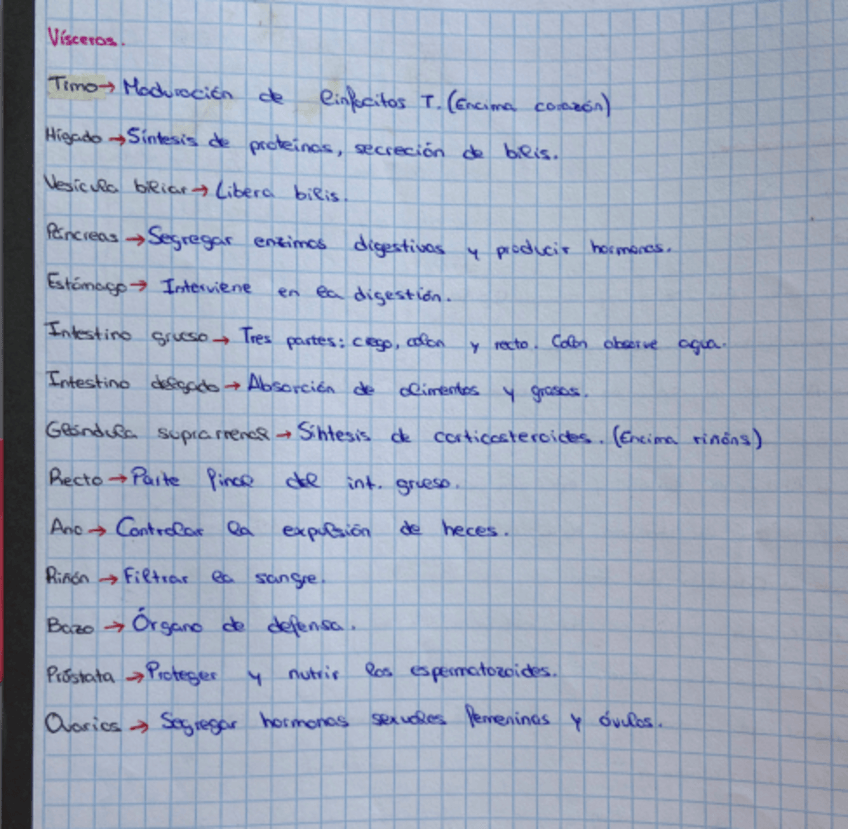 Vísceras.
Timo → Maduración de linfocitos T. (Encima corazón)
Hígado → Síntesis de proteínas, secreción de bilis.
Vesícula biliar → Libera bilis.
Páncreas → Segregar enzimas digestivas y producir hormonas.
Estómago → Interviene en la digestión.
Intestino grueso → Tres partes: ciego, colon y recto. Colon absorve agua.
Intestino delgado → Absorción de alimentos y grasas.
Glándula suprarrenal → Síntesis de corticosteroides. (Encima riñóns)
Recto → Parte final del int. grueso.
Ano → Controlar la expulsión de heces.
Riñón → Filtrar la sangre.
Bazo → Órgano de defensa.
Próstata → Proteger y nutrir los espermatozoides.
Ovarios → Segregar hormonas sexuales femeninas y óvulos.